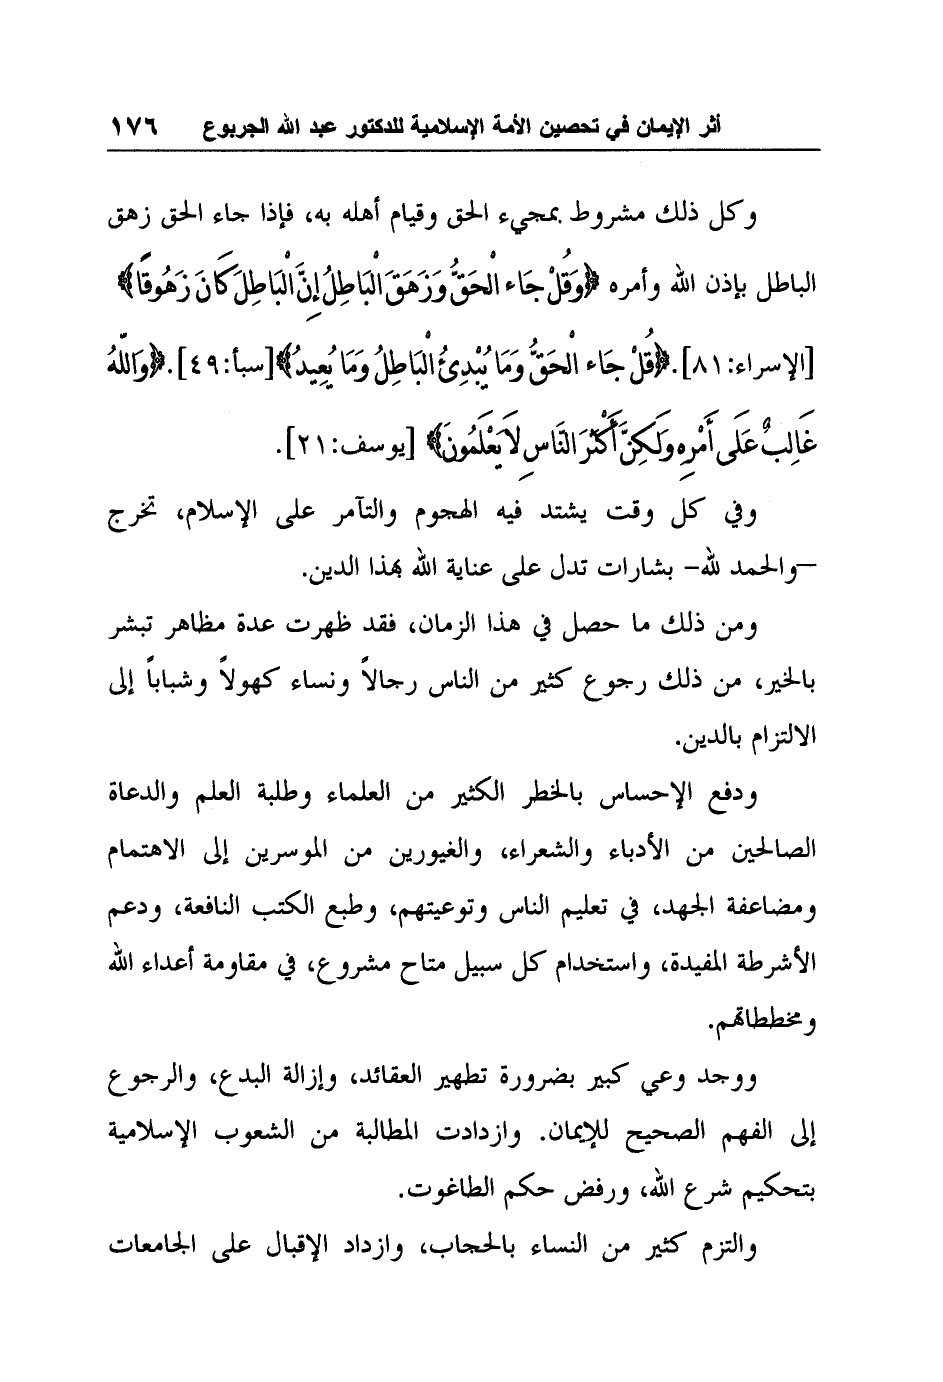 أثر الإيمان في تحصين الأمة الإسلامية للدكتور عبد الله الجربوع ١٧٦
وكل ذلك مشروط بمجيء الحق وقيام أهله به، فإذا جاء الحق زهق
الباطل بإذن الله وأمره ﴿وَقُلْ جَاء الْحَقُّ وَزَهَقَ الْبَاطِلُ إِنَّ الْبَاطِلَ كَانَ زَهُوقًا﴾
[الإسراء:٨١]. ﴿قُلْ جَاء الْحَقُّ وَمَا يُبْدِئُ الْبَاطِلُ وَمَا يُعِيدُ﴾[سبأ:٤٩]. ﴿وَاللّهُ
غَالِبٌ عَلَى أَمْرِهِ وَلَكِنَّ أَكْثَرَ النَّاسِ لاَ يَعْلَمُونَ﴾ [يوسف:٢١].
وفي كل وقت يشتد فيه الهجوم والتآمر على الإسلام، تخرج
–والحمد لله– بشارات تدل على عناية الله بهذا الدين.
ومن ذلك ما حصل في هذا الزمان، فقد ظهرت عدة مظاهر تبشر
بالخير، من ذلك رجوع كثير من الناس رجالاً ونساء كهولاً وشباباً إلى
الالتزام بالدين.
ودفع الإحساس بالخطر الكثير من العلماء وطلبة العلم والدعاة
الصالحين من الأدباء والشعراء، والغيورين من الموسرين إلى الاهتمام
ومضاعفة الجهد، في تعليم الناس وتوعيتهم، وطبع الكتب النافعة، ودعم
الأشرطة المفيدة، واستخدام كل سبيل متاح مشروع، في مقاومة أعداء الله
ومخططاتهم.
ووجد وعي كبير بضرورة تطهير العقائد، وإزالة البدع، والرجوع
إلى الفهم الصحيح للإيمان. وازدادت المطالبة من الشعوب الإسلامية
بتحكيم شرع الله، ورفض حكم الطاغوت.
والتزم كثير من النساء بالحجاب، وازداد الإقبال على الجامعات